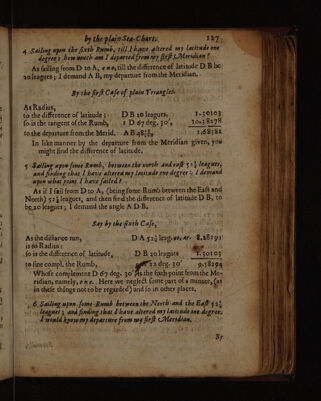 by the plain Sea-Chart. 127
4 Sailing upon the sixth Rumb, till I have altered my latitude one
degree; how much am I departed from my first Meridian?
As sailing from D to A, ene, till the difference of latitude D B be
20 leagues; I demand A B, my departure from the Meridian.
By the first Case of plain Triangles.
As Radius,
to the difference of latitude: D B 20 leagues, 1.30103
so is the tangent of the Rumb, D 67 deg. 30', 10.38278
to the departure from the Merid. A B 48 1.68381
In like manner by the departure from the Meridian given, you
might find the difference of latitude.
5 Sailing upon some Rumb, between the north and east 52¼ leagues,
and finding that I have altered my latitude one degree: I demand
upon what point I have sailed?
As if I sail from D to A, (being some Rumb between the East and
North) 52¼ leagues, and then find the difference of latitude D B, to
be 20 leagues; I demand the angle A D B.
Say by the sixth Case,
As the distance run, D A 52¼ leag. ar. 8.28191
is to Radius:
so is the difference of latitude, D B 20 leagues 1.30103
to sine compl. the Rumb, 22 deg. 30' 9.58294
Whose complement D 67 deg. 30' is the sixth point from the Me-
ridian, namely, ene. Here we neglect some part of a minute, (as
in these things not to be regarded) and so in other places,
6 Sailing upon some Rumb between the North and the East 52¼
leagues; and finding that I have altered my latitude one degree,
I would know my departure from my first Meridian.
By